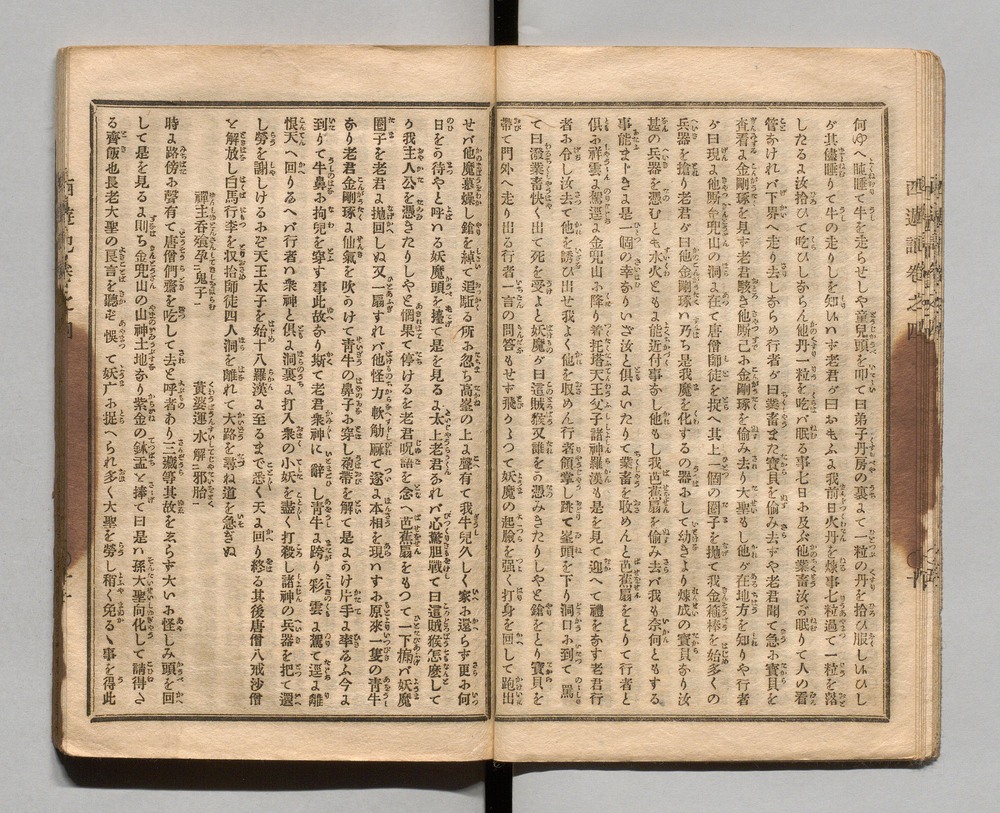 何ゆへ睡睡て牛を走らせしや童兒頭を叩て曰弟子丹房の裏よて一粒の丹を拾ひ服しゐひし
が其儘睡りて牛の走りしを知ゐハず老君が曰おもふよ我前日火丹を煉事七粒過て一粒を落
したるよ汝拾ひて吃ひしあらん他丹一粒を吃へバ眠る事七日お及ぶ他業畜汝が眠りて人の看
管なけれバ下界へ走り去しならめ行者が曰業畜また寳貝を偷み去ずや老君聞て急お寳貝を
査看よ金剛琢を見ず老君駭き他断己お金剛琢を偷み去り大聖も他が在地方を知りや行者
が曰現よ他断金兜山の洞よ在て唐僧師徒を捉へ其上一個の圈子を抛て我金箍棒を始多くの
兵器を搶り老君が曰他金剛琢ハ乃ち是我魔を化するの器おして幼きより煉成の寳貝なり汝
甚の兵器を憑むとも水火ともよ能近付事なし他もし我芭蕉扇を偷み去バ我も奈何ともする
事能まトきよ是一個の幸なりいざ汝と俱よいたりて業畜を收めんと芭蕉扇をとりて行者と
俱お祥雲よ駕遥よ金兜山お降り着托塔天王父子諸神羅漢も是を見て迎へて禮をなす老君行
者お令し汝去て他を誘ひ出せ我よく他を收めん行者領掌し跳て峯頭を下り洞口お到て罵
て曰潑業畜快く出て死を受よと妖魔が曰這賊猴又誰をの憑みきたりしやと鎗をとり寳貝を
帶て門外へ走り出る行者一言の問答もせず飛りゝつて妖魔の起臉を强く打身を回して跑出
せバ他魔慕燥し鎗を綽て迴駈る所お忽ち高峯の上よ聲有て我牛兒久しく家お還らず更お何
日をの待やと呼ハる妖魔頭を擡て是を見るよ太上老君なれバ心驚胆戰て曰這賊猴怎麽して
り我主人公を憑きたりしやと惘果て停けるを老君呪語を念へ芭蕉扇をもつて一下搧バ妖魔
圈子を老君よ抛回しぬ又一扇すれバ他怪力軟觔麻て遂よ本相を現ハすお原來一隻の靑牛
なり老君金剛琢よ仙氣を吹りけて靑牛の鼻子お穿し葹帶を解て是よりけ片手よ牽るふ今よ
到りて牛鼻お拘兒を穿す事此故なり斯て老君衆神に辭し靑牛よ跨り彩雲よ駕て逕よ離
恨天へ回りるへバ行者ハ衆神と俱よ洞裏よ打入衆の小妖を盡く打殺し諸神の兵器を把て還
し勞を謝しけるおぞ天王太子を始十八羅漢よ至るまで悉く天よ回り終る其後唐僧八戒沙僧
を解放し白馬行李を収拾師徒四人洞を離れて大路を尋ね道を急ぎぬ
禪主吞飡孕鬼子　黃婆運水解邪胎
時よ路傍お聲有て唐僧們齋を吃して去と呼者あり三藏等其故をゑらず大いお怪しみ頭を回
して是を見るよ則ち金兜山の山神土地なり紫金の鉢盂と捧て曰是ハ孫大聖向化して請得さ
る齊飯也長老大聖の良言を聽ぜ悞て妖亡お捉へられ多く大聖を勞し稍く免るゝ事を得此